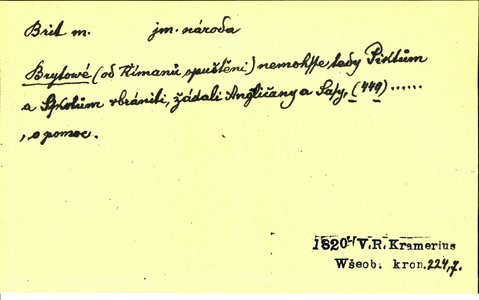 Brit m. jm. národa
Brytowé (od Římanů opuštěni) nemohsse tedy Piktům
a Skotům vbrániti, žádali Angličany a Sasy, (449) ......
, o pomoc.
1820 V.R.Kramerius
Wšeob. kron. 224,7.